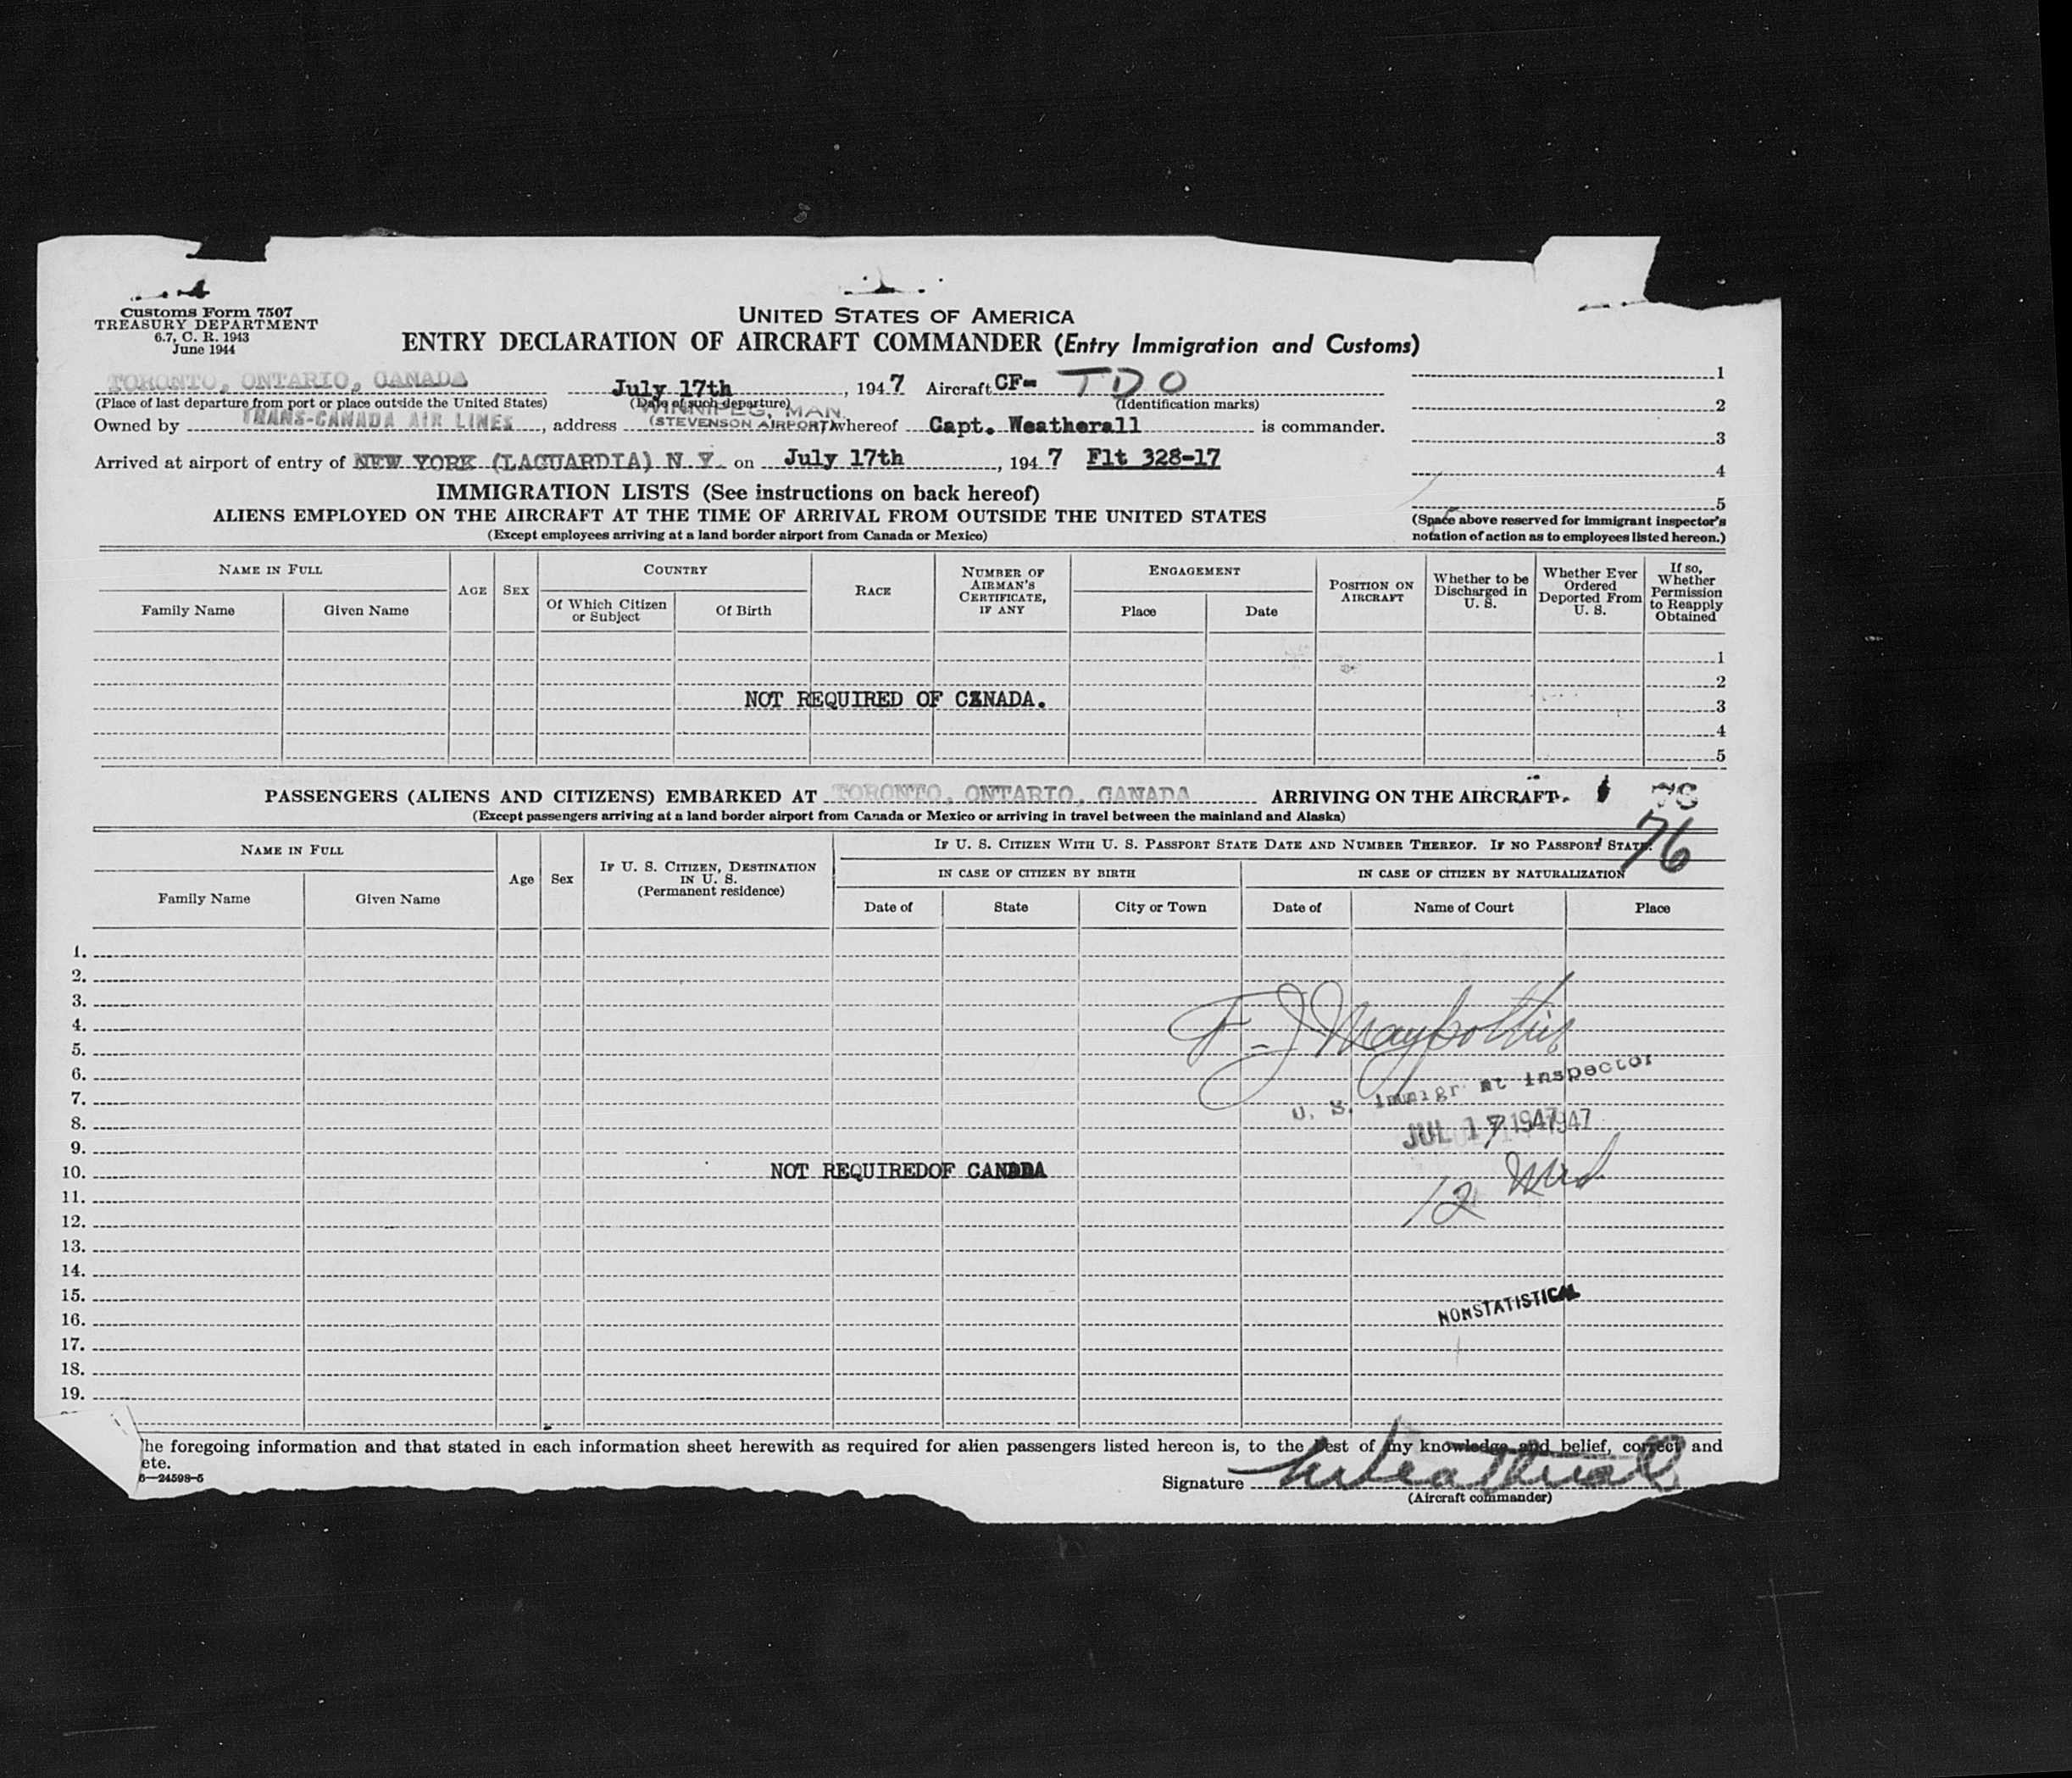 Customs Form 7507
TREASURY DEPARTMENT
6.7, C. R. 1943
June 1944
UNITED STATES OF AMERICA
ENTRY DECLARATION OF AIRCRAFT COMMANDER (Entry Immigration and Customs)
TORONTO, ONTARIO, CANADA July 17th, 1947 Aircraft CF- TDO
(Place of last departure from port or place outside the United States) (Date of such departure) (Identification marks)
WINNIPEG, MAN.
Owned by TRANS-CANADA AIR LINES, address (STEVENSON AIRPORT) whereof Capt. Weatherall is commander.
Arrived at airport of entry of NEW YORK (LAGUARDIA) N Y. on July 17th, 1947 Flt 328-17
1
2
3
4
5
(Space above reserved for immigrant inspector's
notation of action as to employees listed hereon.)
IMMIGRATION LISTS (See instructions on back hereof)
ALIENS EMPLOYED ON THE AIRCRAFT AT THE TIME OF ARRIVAL FROM OUTSIDE THE UNITED STATES
(Except employees arriving at a land border airport from Canada or Mexico)
NAME IN FULL
Family Name Given Name
AGE SEX
COUNTRY
Of Which Citizen or Subject Of Birth
RACE
NUMBER OF AIRMAN'S CERTIFICATE, IF ANY
ENGAGEMENT
Place Date
POSITION ON AIRCRAFT
Whether to be Discharged in U. S.
Whether Ever Ordered Deported From U. S.
If so, Whether Permission to Reapply Obtained
1
2
NOT REQUIRED OF CANADA.
3
4
5
PASSENGERS (ALIENS AND CITIZENS) EMBARKED AT TORONTO, ONTARIO, CANADA ARRIVING ON THE AIRCRAFT.
(Except passengers arriving at a land border airport from Canada or Mexico or arriving in travel between the mainland and Alaska)
76
NAME IN FULL
Family Name Given Name
Age Sex
IF U. S. CITIZEN, DESTINATION IN U. S.
(Permanent residence)
IF U. S. CITIZEN WITH U. S. PASSPORT STATE DATE AND NUMBER THEREOF. IF NO PASSPORT STATE:
IN CASE OF CITIZEN BY BIRTH IN CASE OF CITIZEN BY NATURALIZATION
Date of State City or Town Date of Name of Court Place
1.
2.
3.
4.
5.
6.
U. S. Immigr nt Inspector
7.
8.
JUL 17 1947
9.
10. NOT REQUIREDOF CANADA
12
11.
12.
13.
14.
15.
NONSTATISTICAL
16.
17.
18.
19.
he foregoing information and that stated in each information sheet herewith as required for alien passengers listed hereon is, to the best of my knowledge and belief, correct and
ete.
6—24598-5
Signature Weatherall
(Aircraft commander)